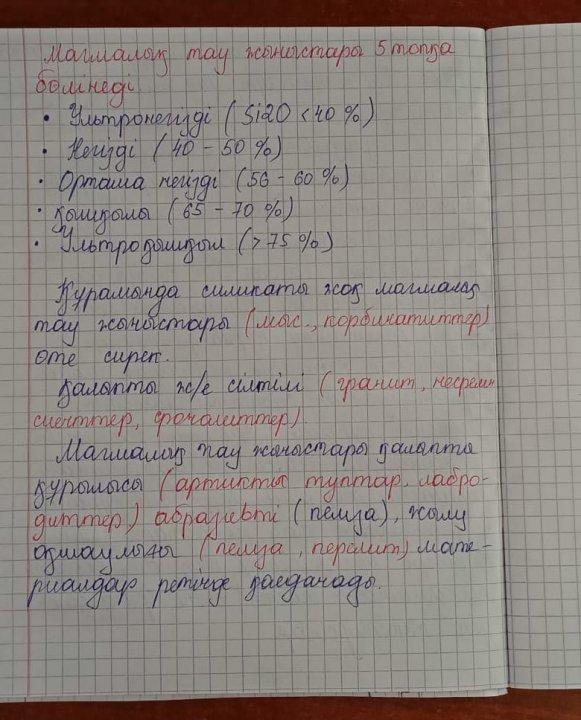 Магмалық тау жыныстары 5 топқа
бөлінеді
• Ультронегізді (Si2O < 40 %)
• Негізді (40 - 50 %)
• Ортама негізді (56 - 60 %)
• қышқылы (65 - 70 %)
• Ультроқышқыл (> 75 %)
Құрамында силикаты жоқ магмалық
тау жыныстары (мыс., корбинатиттер)
өте сирек.
қалыпты ж/е сілтілі (гранит,
сиенттер,
Магмалық тау жыныстары қалыпты
құрылысы (артикты туптар, лабро-
диттер) абразивті (пемза), жылу
оқшаулығы (пемза, перелит) мате-
риалдар ретінде қолданады.